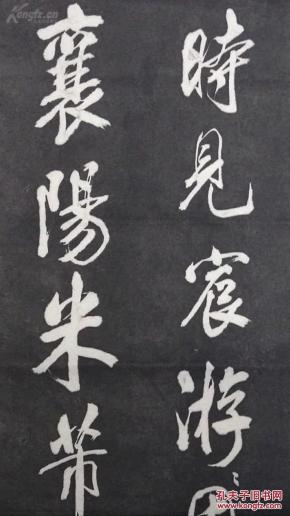 時見宸游
襄陽米芾
孔夫子旧书网
KONGFZ.COM